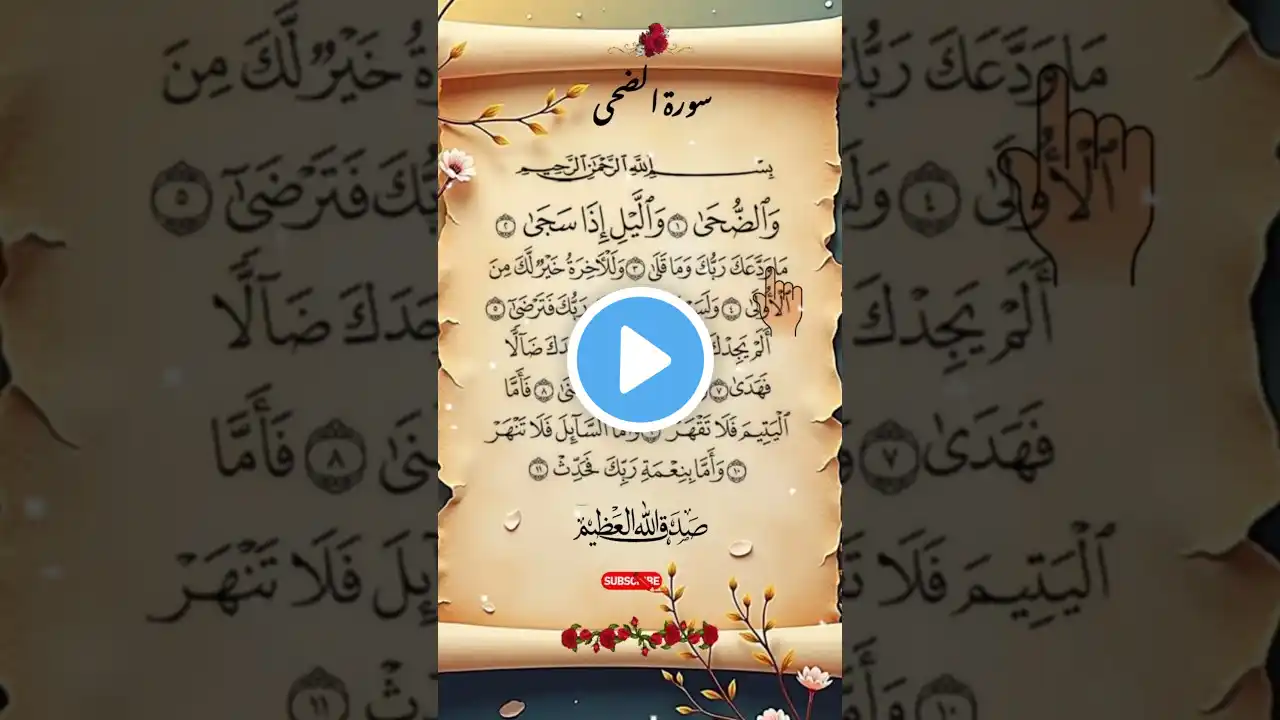 سورة الضحى
بِسْمِ ٱللَّهِ ٱلرَّحْمَٰنِ ٱلرَّحِيمِ
وَٱلضُّحَىٰ ١ وَٱلَّيْلِ إِذَا سَجَىٰ ٢
مَا وَدَّعَكَ رَبُّكَ وَمَا قَلَىٰ ٣ وَلَلْآخِرَةُ خَيْرٌ لَّكَ مِنَ
ٱلْأُولَىٰ ٤ رَبُّكَ فَتَرْضَىٰٓ ٥
أَلَمْ يَجِدْكَ ضَآلًّا
فَهَدَىٰ ٧ ٨ فَأَمَّا
ٱلْيَتِيمَ فَلَا تَقْهَرْ وَأَمَّا ٱلسَّآئِلَ فَلَا تَنْهَرْ
١٠ وَأَمَّا بِنِعْمَةِ رَبِّكَ فَحَدِّثْ ١١
صَدَقَ اللّٰهُ الْعَظِيمُ
SUBSCRIBE